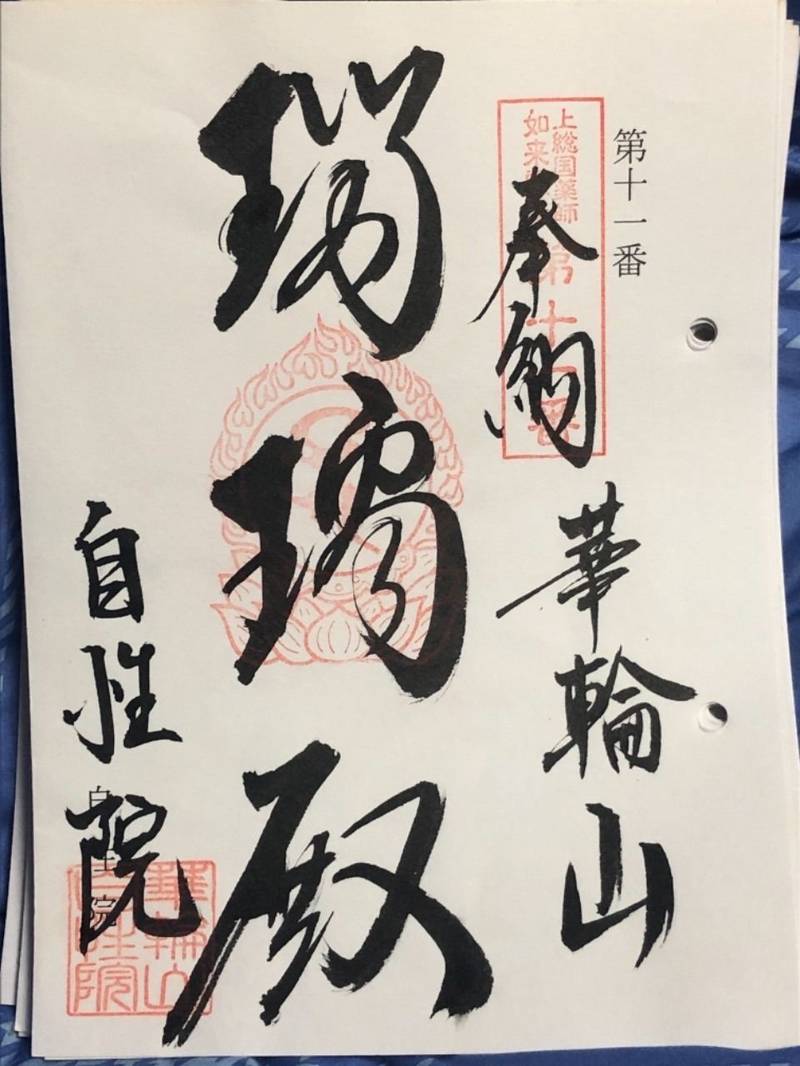 第十一番
上総国薬師
如来
第十一番
奉納
華輪山
瑠璃殿
自性院
自性院
華輪山
自性院